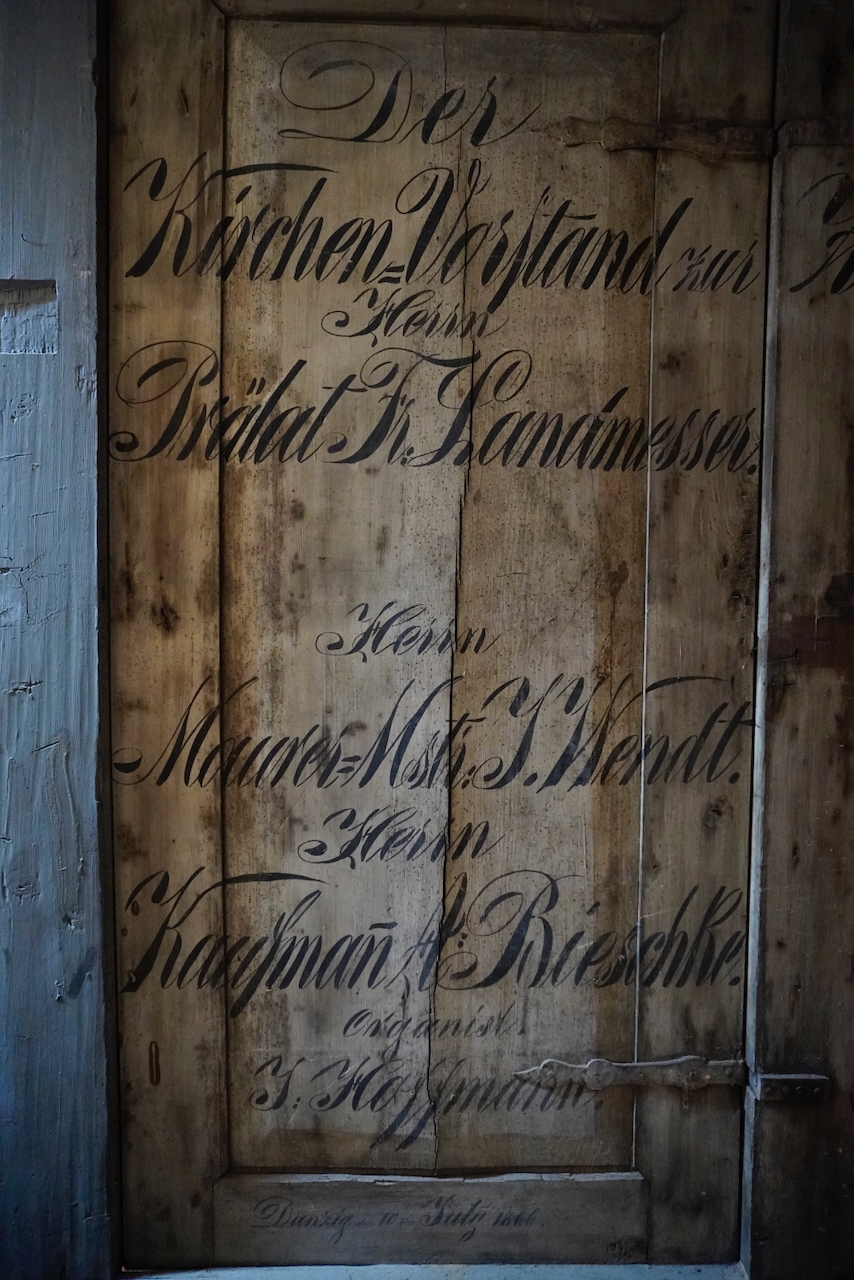 Der
Kirchen=Vorstand zur
Herrn
Prälat Fr. Landmesser.
Herrn
Maurer=Mstr. J. Wendt.
Herrn
Kaufmañ A. Bieschke.
Organist.
J. Hoffmann.
Danzig 10 July 1866.